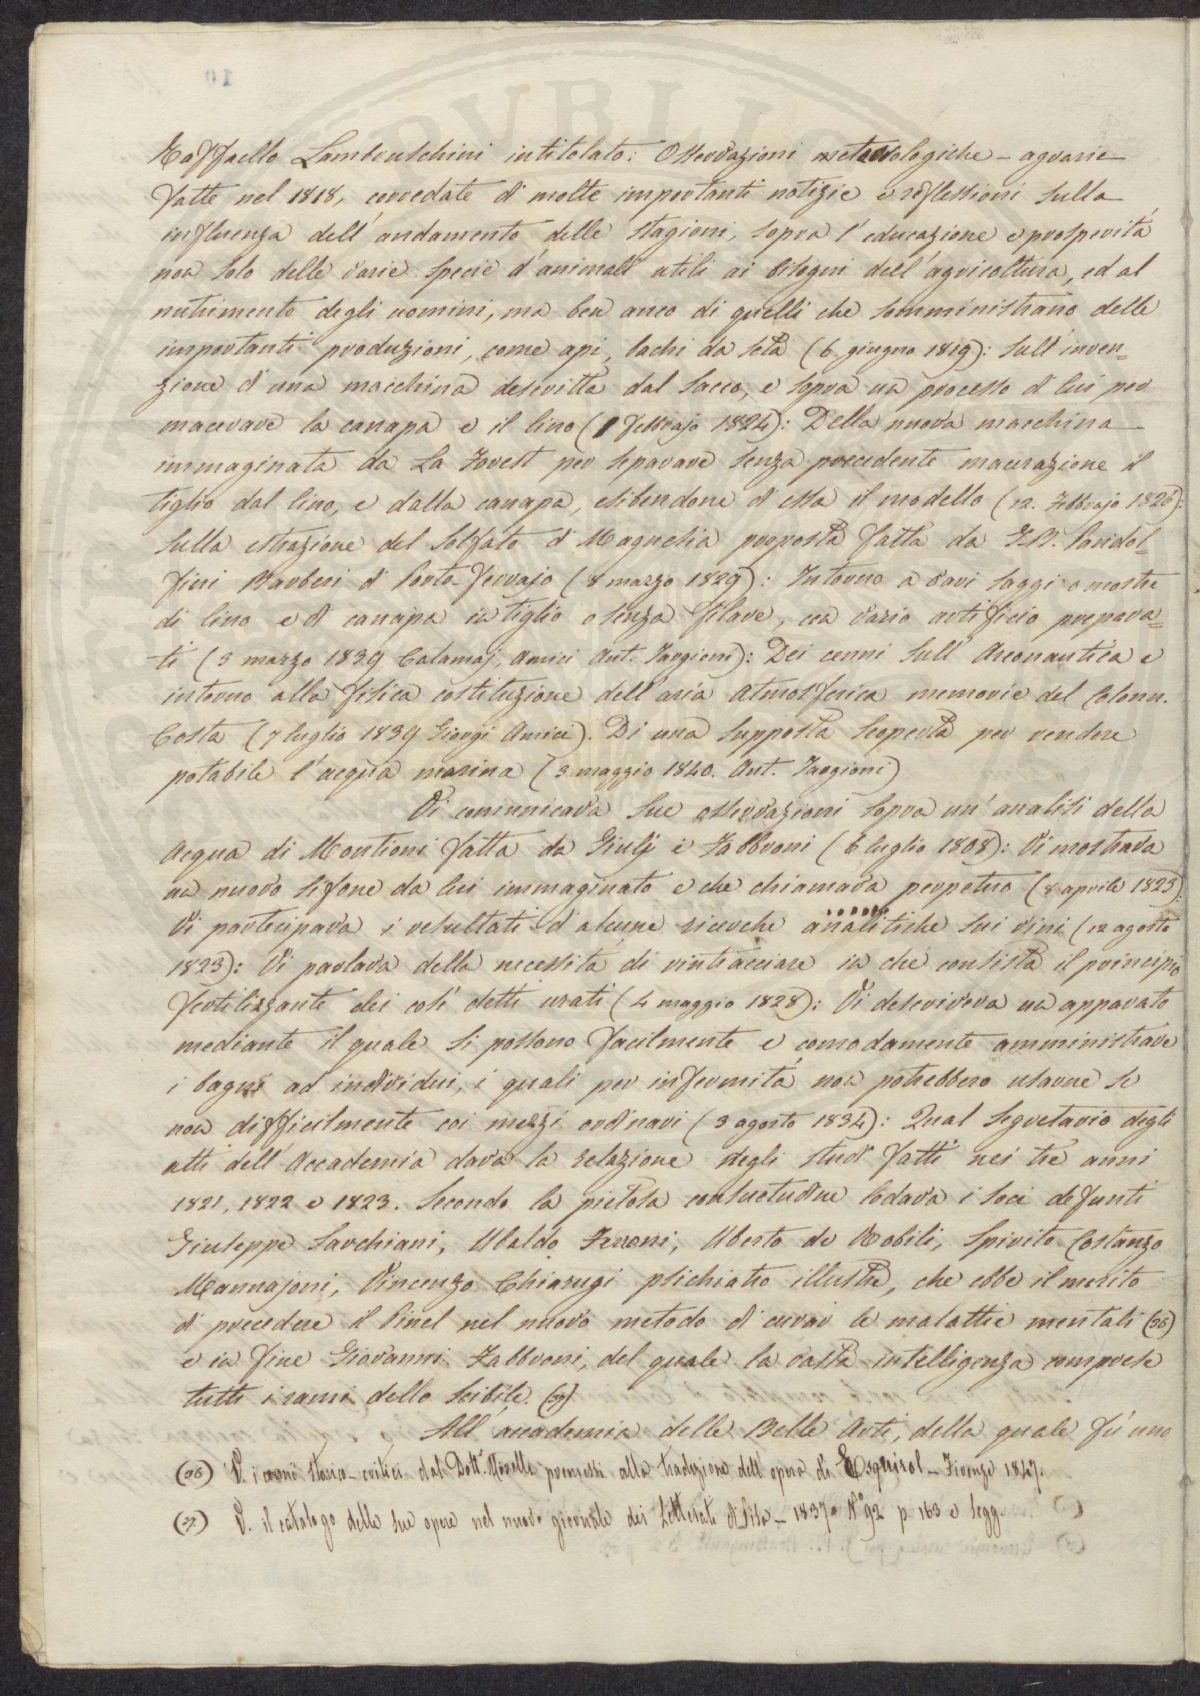 Raffaello Lambruschini intitolato: Osservazioni meteorologiche – agrarie
fatte nel 1818, corredate di molte importanti notizie e reflessioni sulla
influenza dell'andamento delle stagioni, sopra l'educazione e prosperità
non solo delle varie specie d'animali utili ai bisogni dell'agricoltura, ed al
nutrimento degli uomini, ma ben anco di quelli che somministrano delle
importanti produzioni, come api, bachi da seta (6 giugno 1819): Sull'inven=
zione d'una macchina descritta dal Sacco, e sopra un processo di lui per
macerare la canapa e il lino (1 Febbrajo 1824): Della nuova macchina
immaginata da La Forest per separare senza precedente macerazione il
tiglio dal lino, e dalla canapa, esibendone di essa il modello (12. Febbrajo 1826):
Sulla estrazione del Solfato di Magnesia proposta fatta da G.B. Pandol=
fini Barberi di Porto-Ferrajo (8 marzo 1829): Intorno a varj saggi o mostre
di lino e di canapa in tiglio o senza filare, con vario artificio prepara=
ti (3 marzo 1839 Calamaj, Amici Ant. Targioni): Dei cenni sull'Areonautica e
intorno alla fisica costituzione dell'aria Atmosferica memorie del Colonn.
Costa (7 luglio 1839 Giorgi Amici). Di una supposta scoperta per rendere
potabile l'acqua marina (3 maggio 1840. Ant. Targioni)
Vi comunicava sue osservazioni sopra un'analisi della
Acqua di Montioni fatta da Giulj e Fabbroni (6 luglio 1808): Vi mostrava
un nuovo sifone da lui immaginato e che chiamava perpetuo (8 aprile 1823):
Vi partecipava i resultati d'alcune ricerche analitiche sui vini (12 agosto
1823): Vi parlava della necessità di rintracciare in che consista il principio
fertilizzante dei così detti urati (4 maggio 1828): Vi descriveva un apparato
mediante il quale si possono facilmente e comodamente amministrare
i bagni ad individui, i quali per infermità non potrebbero usarne se
non difficilmente coi mezzi ordinari (3 agosto 1834): Qual Segretario degli
atti dell'Accademia dava la relazione degli studi fatti nei tre anni
1821, 1822 e 1823. Secondo la pietosa consuetudine lodava i soci defunti
Giuseppe Sarchiani, Ubaldo Ferroni, Uberto de Nobili, Spirito Costanzo
Mannajoni, Vincenzo Chiarugi psichiatro illustre, che ebbe il merito
di precedere il Pinel nel nuovo metodo di curar le malattie mentali (36)
e in fine Giovanni Fabbroni, del quale la vasta intelligenza comprese
tutti i rami dello scibile. (37)
All'accademia delle Belle Arti, della quale fu uno
(36) V. i cenni storico-critici dal Dott. Novello premessi alla traduzione dell'opera di Esquirol – Firenze 1847.
(37) V. il catalogo delle sue opere nel nuovo giornale dei Letterati di Pisa – 1837 N° 92 p 163 e segg.